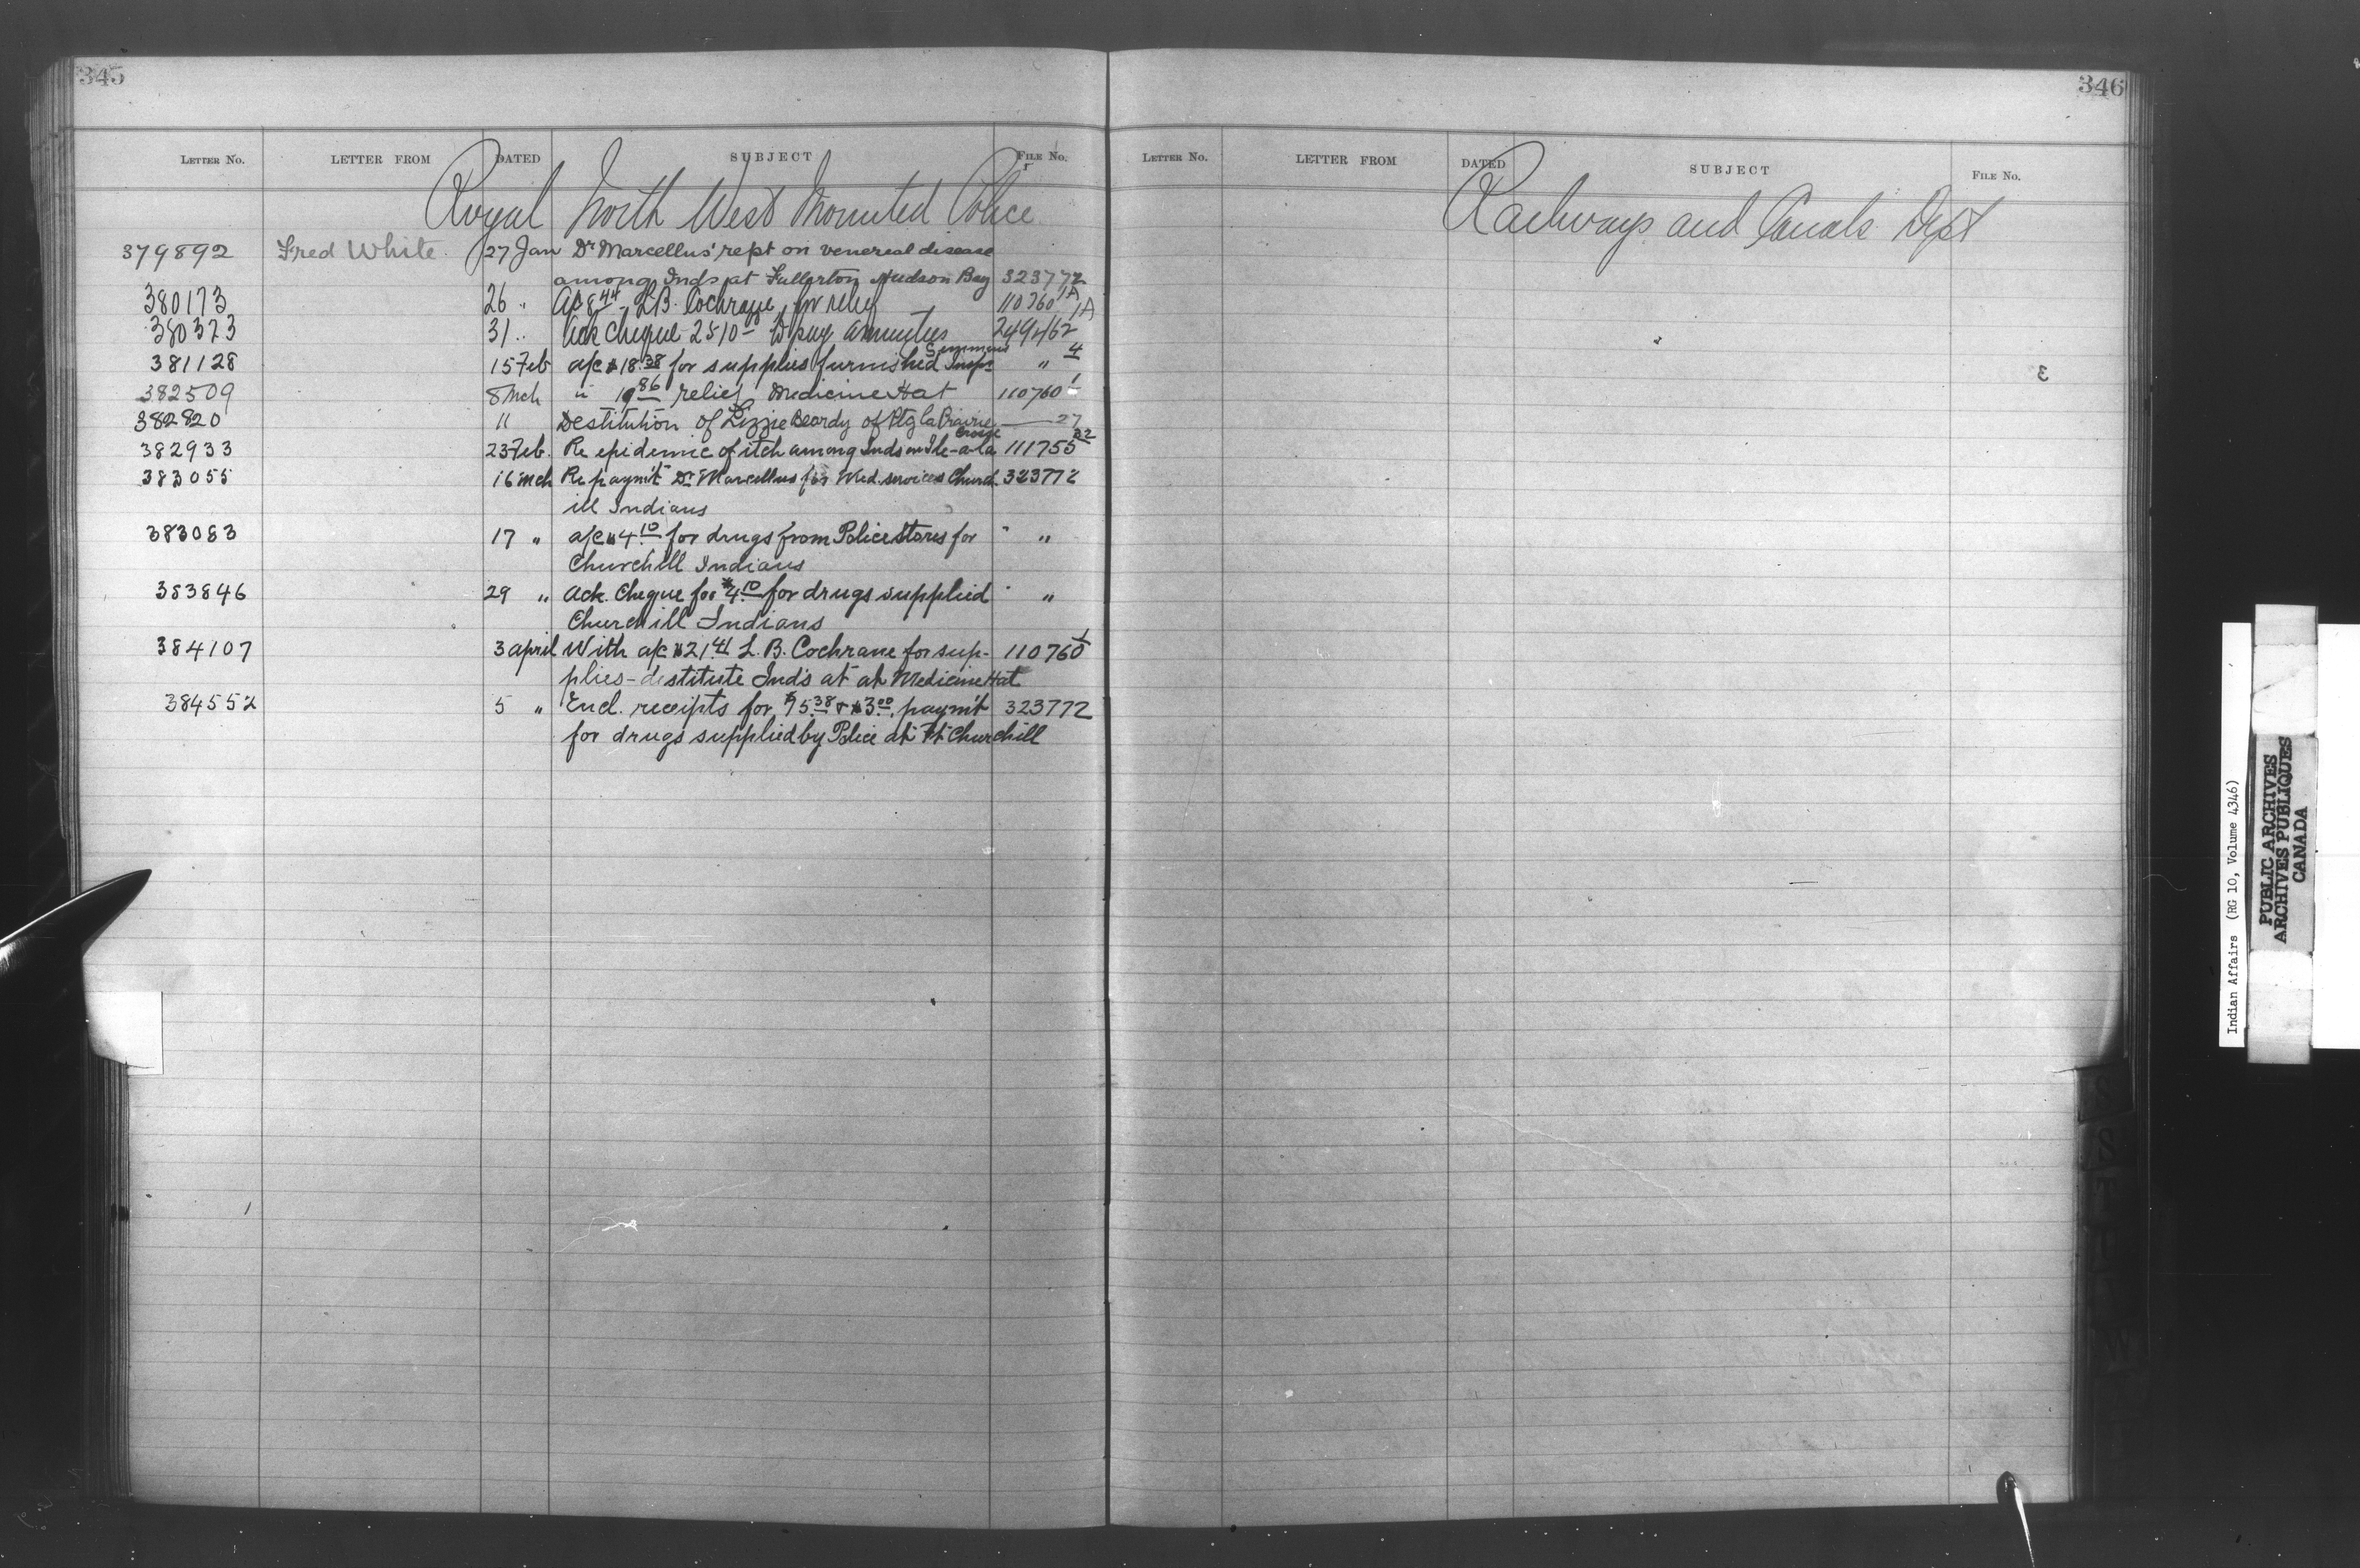 345
LETTER NO. LETTER FROM DATED SUBJECT FILE NO.
Royal North West Mounted Police
379892 Fred White 27 Jan Dr Marcellus' rept on venereal disease
among Inds at Fullerton Hudson Bay 323772
380173 26 " A/c 8.44 L.B. Cochrane, for relief 110760 1A
380323 31 " Ack cheque 2510- to pay annuities 249462 1A
381128 15 Feb a/c $18.38 for supplies furnished Insp. " 4
382509 8 Mch " 19 86 relief Medicine Hat 110760 1
382820 11 Destitution of Lizzie Beardy of Ptg la Prairie — 27
382933 23 Feb. Re epidemic of itch among Inds on Ile-a-la Crosse 111755 22
383055 16 Mch Re paym't Dr Marcellus for Med. services Church 323772
ill Indians
383083 17 " a/c $4.10 for drugs from Police Stores for " "
Churchill Indians
383846 29 " Ack. Cheque for $4.10 for drugs supplied " "
Churchill Indians
384107 3 april With a/c $21.41 L. B. Cochrane for sup- 110760 1
plies - destitute Inds at at Medicine Hat
384552 5 " Encl. receipts for $75.38 & $3.00, paym't 323772
for drugs supplied by Police at Ft Churchill
346
LETTER NO. LETTER FROM DATED SUBJECT FILE NO.
Railways and Canals Dept
Indian Affairs (RG 10, Volume 4346)
PUBLIC ARCHIVES
ARCHIVES PUBLIQUES
CANADA